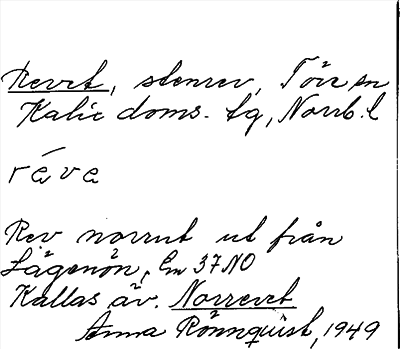 Revet, stenrev, Töre sn
Kalix doms. tg, Norrb. l
reva
Rev norrut ut från
Lägenön, Em 37NO
Kallas äv. Norrevet
Anna Rönnquist, 1949